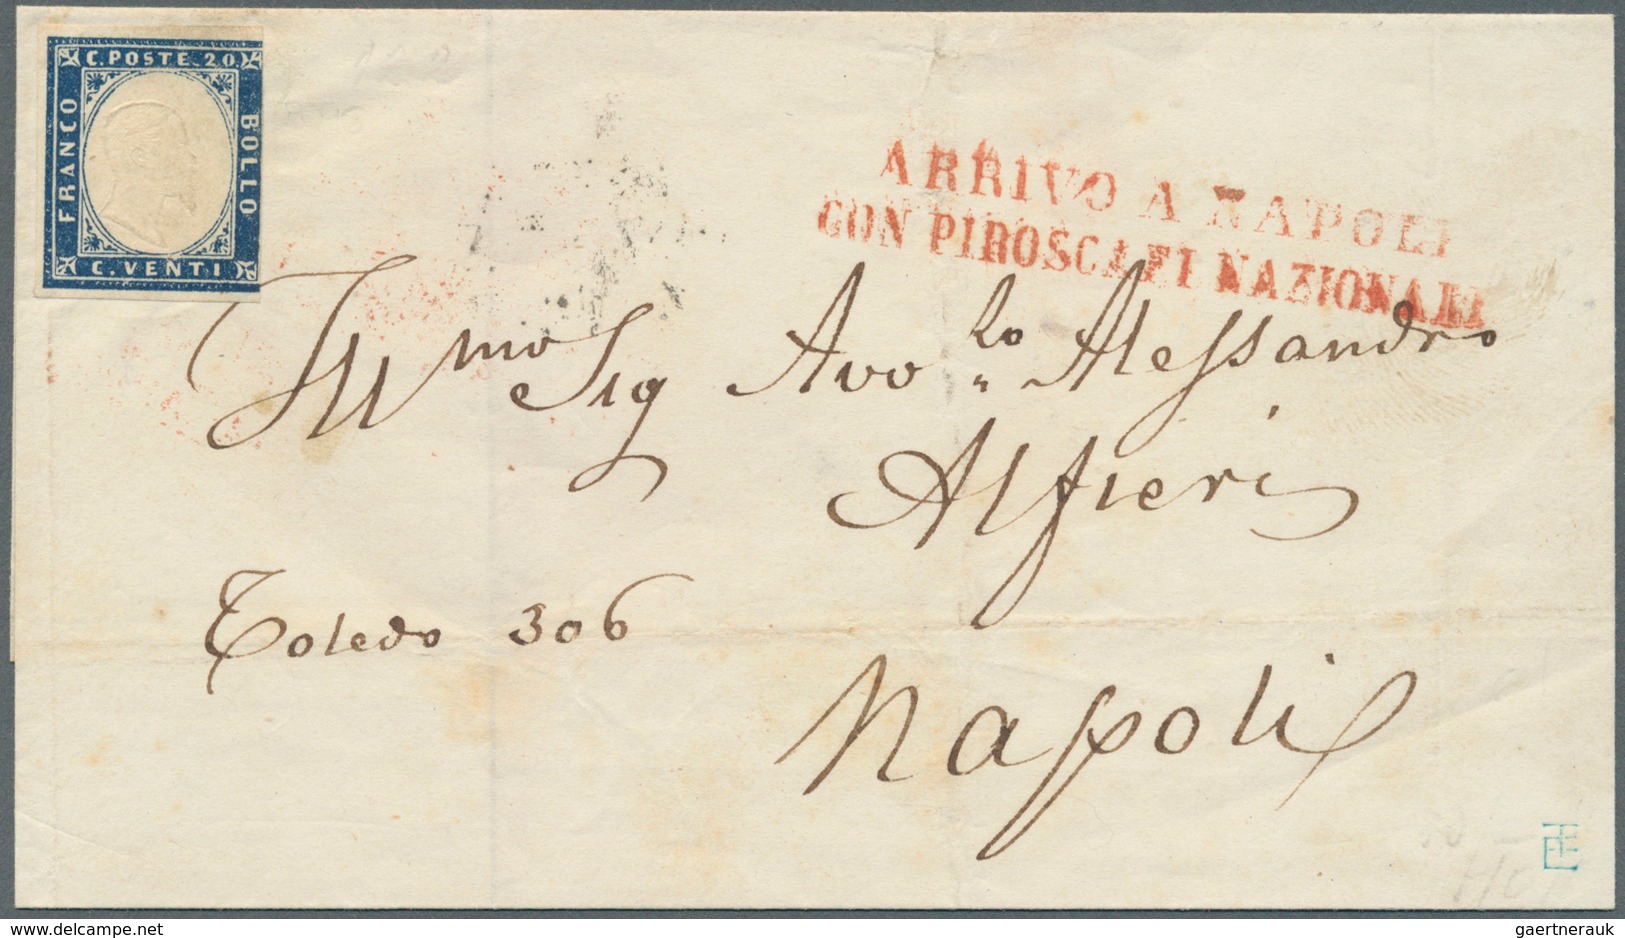 C. POSTE. 20.
FRANCO
BOLLO
C. VENTI
ARRIVO A NAPOLI
CON PIROSCAFI NAZIONALI
Illmo Sig Avo.lo Alessandro
Alfieri
Toledo 306
Napoli
delcampe.net
gaertnerauk